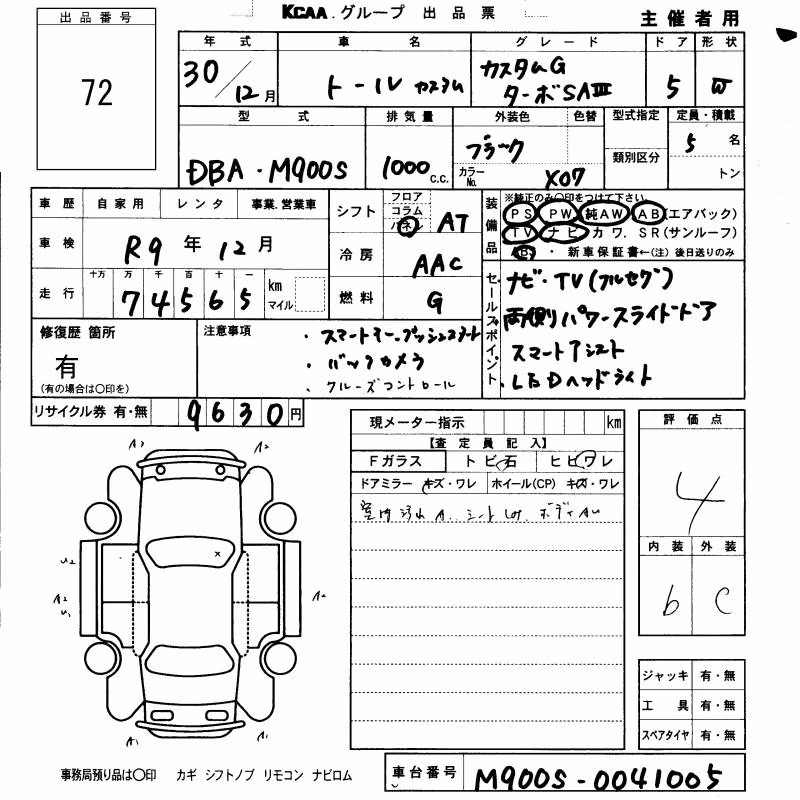 KCAA.グループ 出品票
主催者用
出品番号
72
年式 車名 グレード ドア 形状
30/12月 トール カスタム カスタムG ターボSAⅢ 5 W
型式 排気量 外装色 色替 型式指定 定員・積載
DBA・M900S 1000 c.c. ブラック カラーNo. X07 類別区分 5名 トン
車歴 自家用 レンタ 事業.営業車
車検 R9年12月
走行 十万 万 千 百 十 km マイル
74565
シフト フロア コラム パネル AT
冷房 AAC
燃料 G
装備品 ※純正のみ○印をつけて下さい
PS PW 純AW AB(エアバック)
TV ナビ カワ.SR(サンルーフ)
・新車保証書←(注)後日送りのみ
セールスポイント
ナビ・TV(フルセグ)
両側パワースライドドア
スマートアシスト
・LEDヘッドライト
修復歴 箇所
有
(有の場合は○印を)
注意事項
・スマートキー.プッシュスタート
・バックカメラ
・クルーズコントロール
リサイクル券 有・無 9630円
現メーター指示 km
【査定員記入】
Fガラス トビ石 ヒビワレ
ドアミラー キズ・ワレ ホイール(CP) キズ・ワレ
評価点
4
内装 外装
b c
A2 A2
U2
A2 U1
A2
A1 A2
ジャッキ 有・無
工具 有・無
スペアタイヤ 有・無
事務局預り品は○印 カギ シフトノブ リモコン ナビロム
車台番号 M900S-0041005